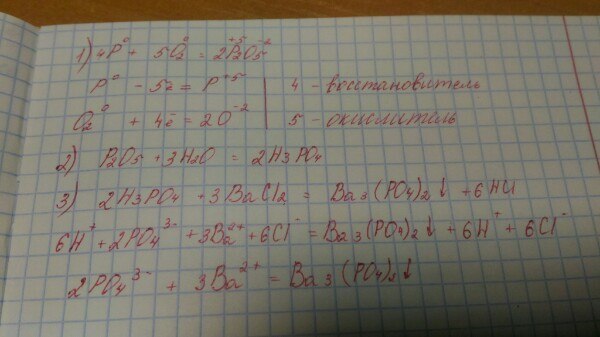 1) 4P⁰ + 5O₂⁰ = 2P₂⁺⁵O₅⁻²
P⁰ - 5ē = P⁺⁵ | 4 - восстановитель
O₂⁰ + 4ē = 2O⁻² | 5 - окислитель
2) P₂O₅ + 3H₂O = 2H₃PO₄
3) 2H₃PO₄ + 3BaCl₂ = Ba₃(PO₄)₂↓ + 6HCl
6H⁺ + 2PO₄³⁻ + 3Ba²⁺ + 6Cl⁻ = Ba₃(PO₄)₂↓ + 6H⁺ + 6Cl⁻
2PO₄³⁻ + 3Ba²⁺ = Ba₃(PO₄)₂↓